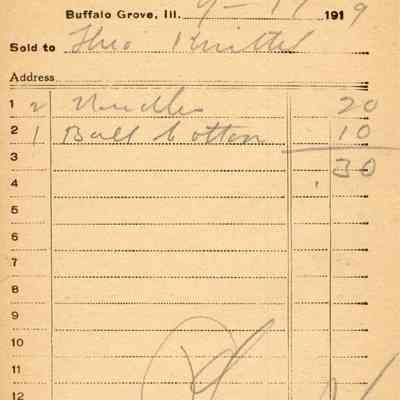 Buffalo Grove, Ill. 9 - 17 1919
Sold to Theo Knittel
Address
1 2 Needles 20
2 1 Ball Cotton 10
3 30
4
5
6
7
8
9
10
11
12